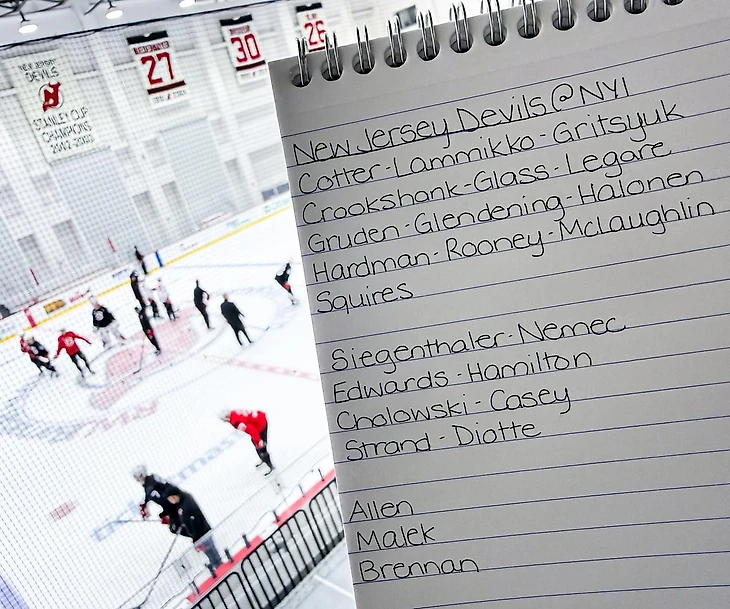 NEW JERSEY
DEVILS
STANLEY CUP
CHAMPIONS
2002-2003
27
30
26
New Jersey Devils @ NYI
Cotter - Lammikko - Gritsyuk
Crookshank - Glass - Legare
Gruden - Glendening - Halonen
Hardman - Rooney - McLaughlin
Squires
Siegenthaler - Nemec
Edwards - Hamilton
Cholowski - Casey
Strand - Diotte
Allen
Malek
Brennan